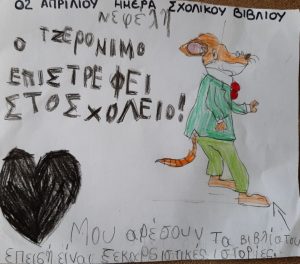 02 ΑΠΡΙΛΙΟΥ ΗΜΕΡΑ ΣΧΟΛΙΚΟΥ ΒΙΒΛΙΟΥ
νεφέλη
Ο ΤΖΕΡΟΝΙΜΟ
ΕΠΙΣΤΡΕΦΕΙ
ΣΤΟ ΣΧΟΛΕΙΟ!
Μου αρέσουν τα βιβλία του
επειδή είναι ξεκαρδιστικές ιστορίες.